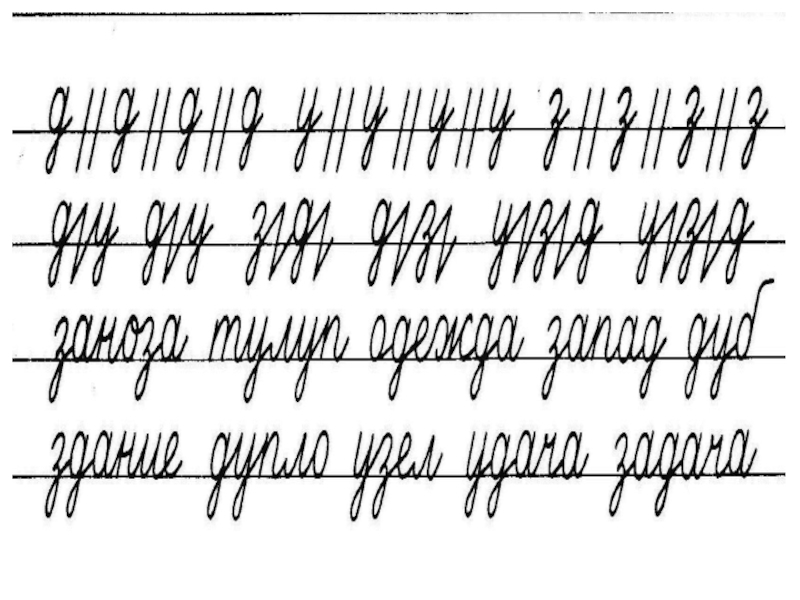 д||д||д||д у||у||у||у з||з||з||з
д|у д|у з|д| д|з| у|з|д у|з|д
заноза тулуп одежда запад дуб
здание дупло узел удача задача